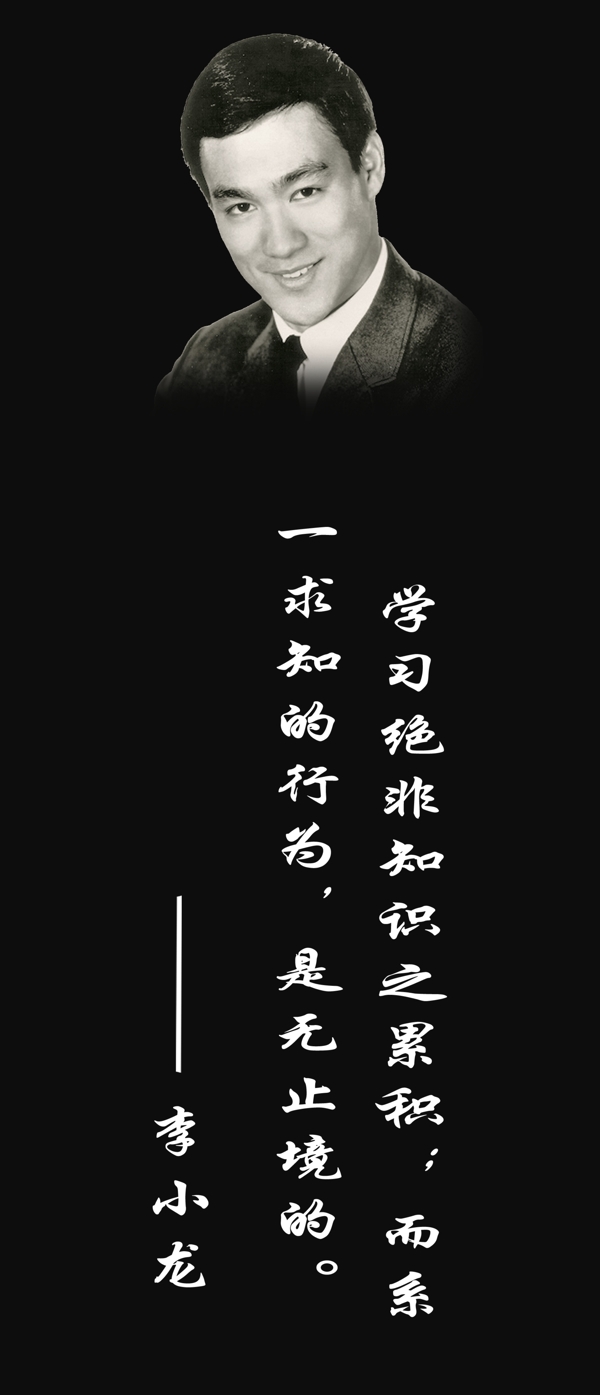 学习绝非知识之累积；而系
一求知的行为，是无止境的。
——李小龙